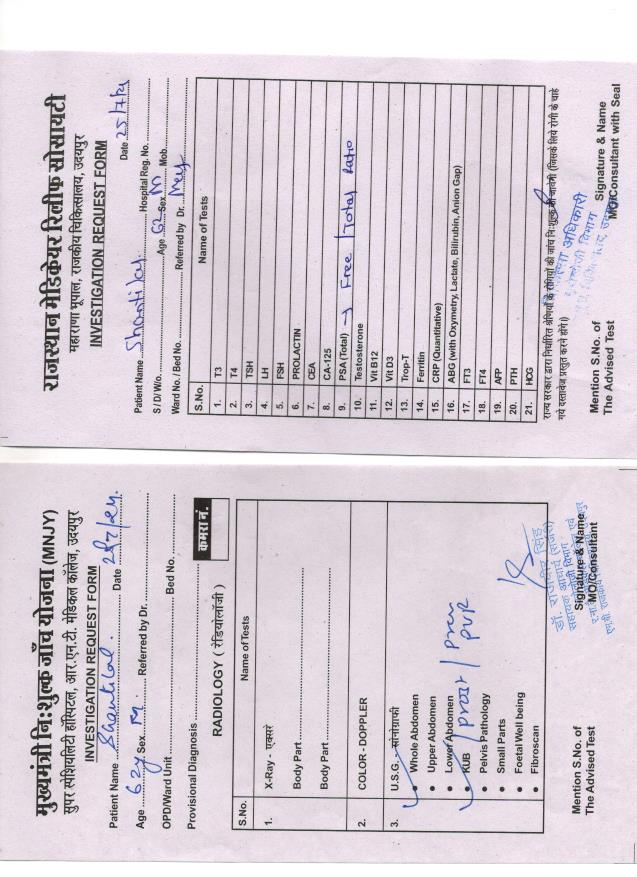 राजस्थान मेडिकेयर रिलीफ सोसायटी
महाराणा भूपाल, राजकीय चिकित्सालय, उदयपुर
INVESTIGATION REQUEST FORM
Date 25/7/24
Patient Name Shantilal Hospital Reg. No.
S / D/W/o. Age 62 Sex M Mob.
Ward No. / Bed No. Referred by Dr.
S.No. Name of Tests
1. T3
2. T4
3. TSH
4. LH
5. FSH
6. PROLACTIN
7. CEA
8. CA-125
9. PSA (Total) → Free / Total Ratio
10. Testosterone
11. Vit B12
12. Vit D3
13. Trop-T
14. Ferritin
15. CRP (Quantitative)
16. ABG (with Oxymetry, Lactate, Bilirubin, Anion Gap)
17. FT3
18. FT4
19. AFP
20. PTH
21. HCG
राज्य सरकार द्वारा निर्धारित श्रेणियों के रोगियों की जांच निःशुल्क की जावेगी (जिसके लिये रोगी के चाहे
गये दस्तावेज प्रस्तुत करने होंगे।)
Mention S.No. of Signature & Name
The Advised Test MO/Consultant with Seal
मुख्यमंत्री निःशुल्क जाँच योजना (MNJY)
सुपर स्पेशियलिटी हॉस्पिटल, आर.एन.टी. मेडिकल कॉलेज, उदयपुर
INVESTIGATION REQUEST FORM
Patient Name Shantilal Date 25/7/24
Age 62y Sex M Referred by Dr.
OPD/Ward Unit Bed No.
Provisional Diagnosis
कमरा नं.
RADIOLOGY ( रेडियोलॉजी )
S.No. Name of Tests
1. X-Ray - एक्सरे
Body Part
Body Part
2. COLOR - DOPPLER
3. U.S.G. - सोनोग्राफी
• Whole Abdomen
• Upper Abdomen
• Lower Abdomen
• KUB / Prost / Prev
PVR
• Pelvis Pathology
• Small Parts
• Foetal Well being
• Fibroscan
Mention S.No. of Signature & Name
The Advised Test MO/Consultant